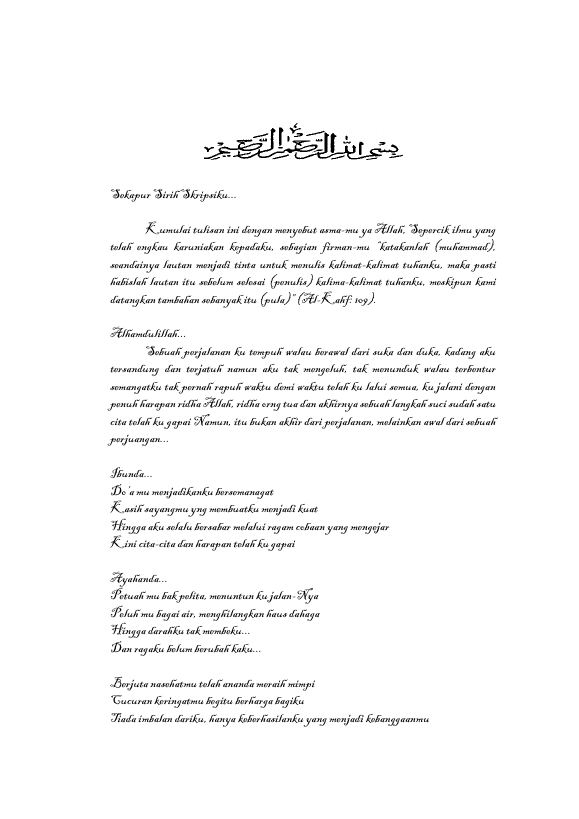 بسم الله الرحمن الرحيم
Sekapur Sirih Skripsiku...
Kumulai tulisan ini dengan menyebut asma-mu ya Allah, Sepercik ilmu yang
telah engkau karuniakan kepadaku, sebagian firman-mu "katakanlah (muhammad),
seandainya lautan menjadi tinta untuk menulis kalimat-kalimat tuhanku, maka pasti
habislah lautan itu sebelum selesai (penulis) kalima-kalimat tuhanku, meskipun kami
datangkan tambahan sebanyak itu (pula)" (Al-Kahf: 109).
Alhamdulillah...
Sebuah perjalanan ku tempuh walau berawal dari suka dan duka, kadang aku
tersandung dan terjatuh namun aku tak mengeluh, tak menunduk walau terbentur
semangatku tak pernah rapuh waktu demi waktu telah ku lalui semua, ku jalani dengan
penuh harapan ridha Allah, ridha orng tua dan akhirnya sebuah langkah suci sudah satu
cita telah ku gapai Namun, itu bukan akhir dari perjalanan, melainkan awal dari sebuah
perjuangan...
Ibunda...
Do'a mu menjadikanku bersemanagat
Kasih sayangmu yng membuatku menjadi kuat
Hingga aku selalu bersabar melalui ragam cobaan yang mengejar
Kini cita-cita dan harapan telah ku gapai
Ayahanda...
Petuah mu bak pelita, menuntun ku jalan-Nya
Peluh mu bagai air, menghilangkan haus dahaga
Hingga darahku tak membeku...
Dan ragaku belum berubah kaku...
Berjuta nasehatmu telah ananda meraih mimpi
Cucuran keringatmu begitu berharga bagiku
Tiada imbalan dariku, hanya keberhasilanku yang menjadi kebanggaanmu